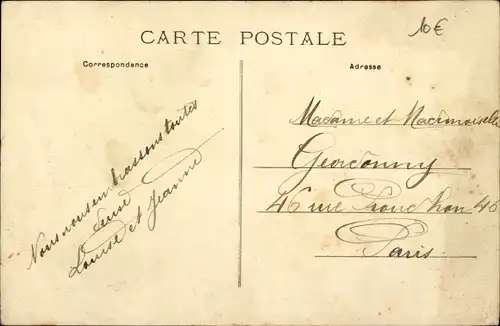 10€
CARTE POSTALE
Correspondance
Adresse
Nous nous embrassons toutes
deux
Louise et Jeanne
Madame et Mademoiselle
46 rue 46
Paris.